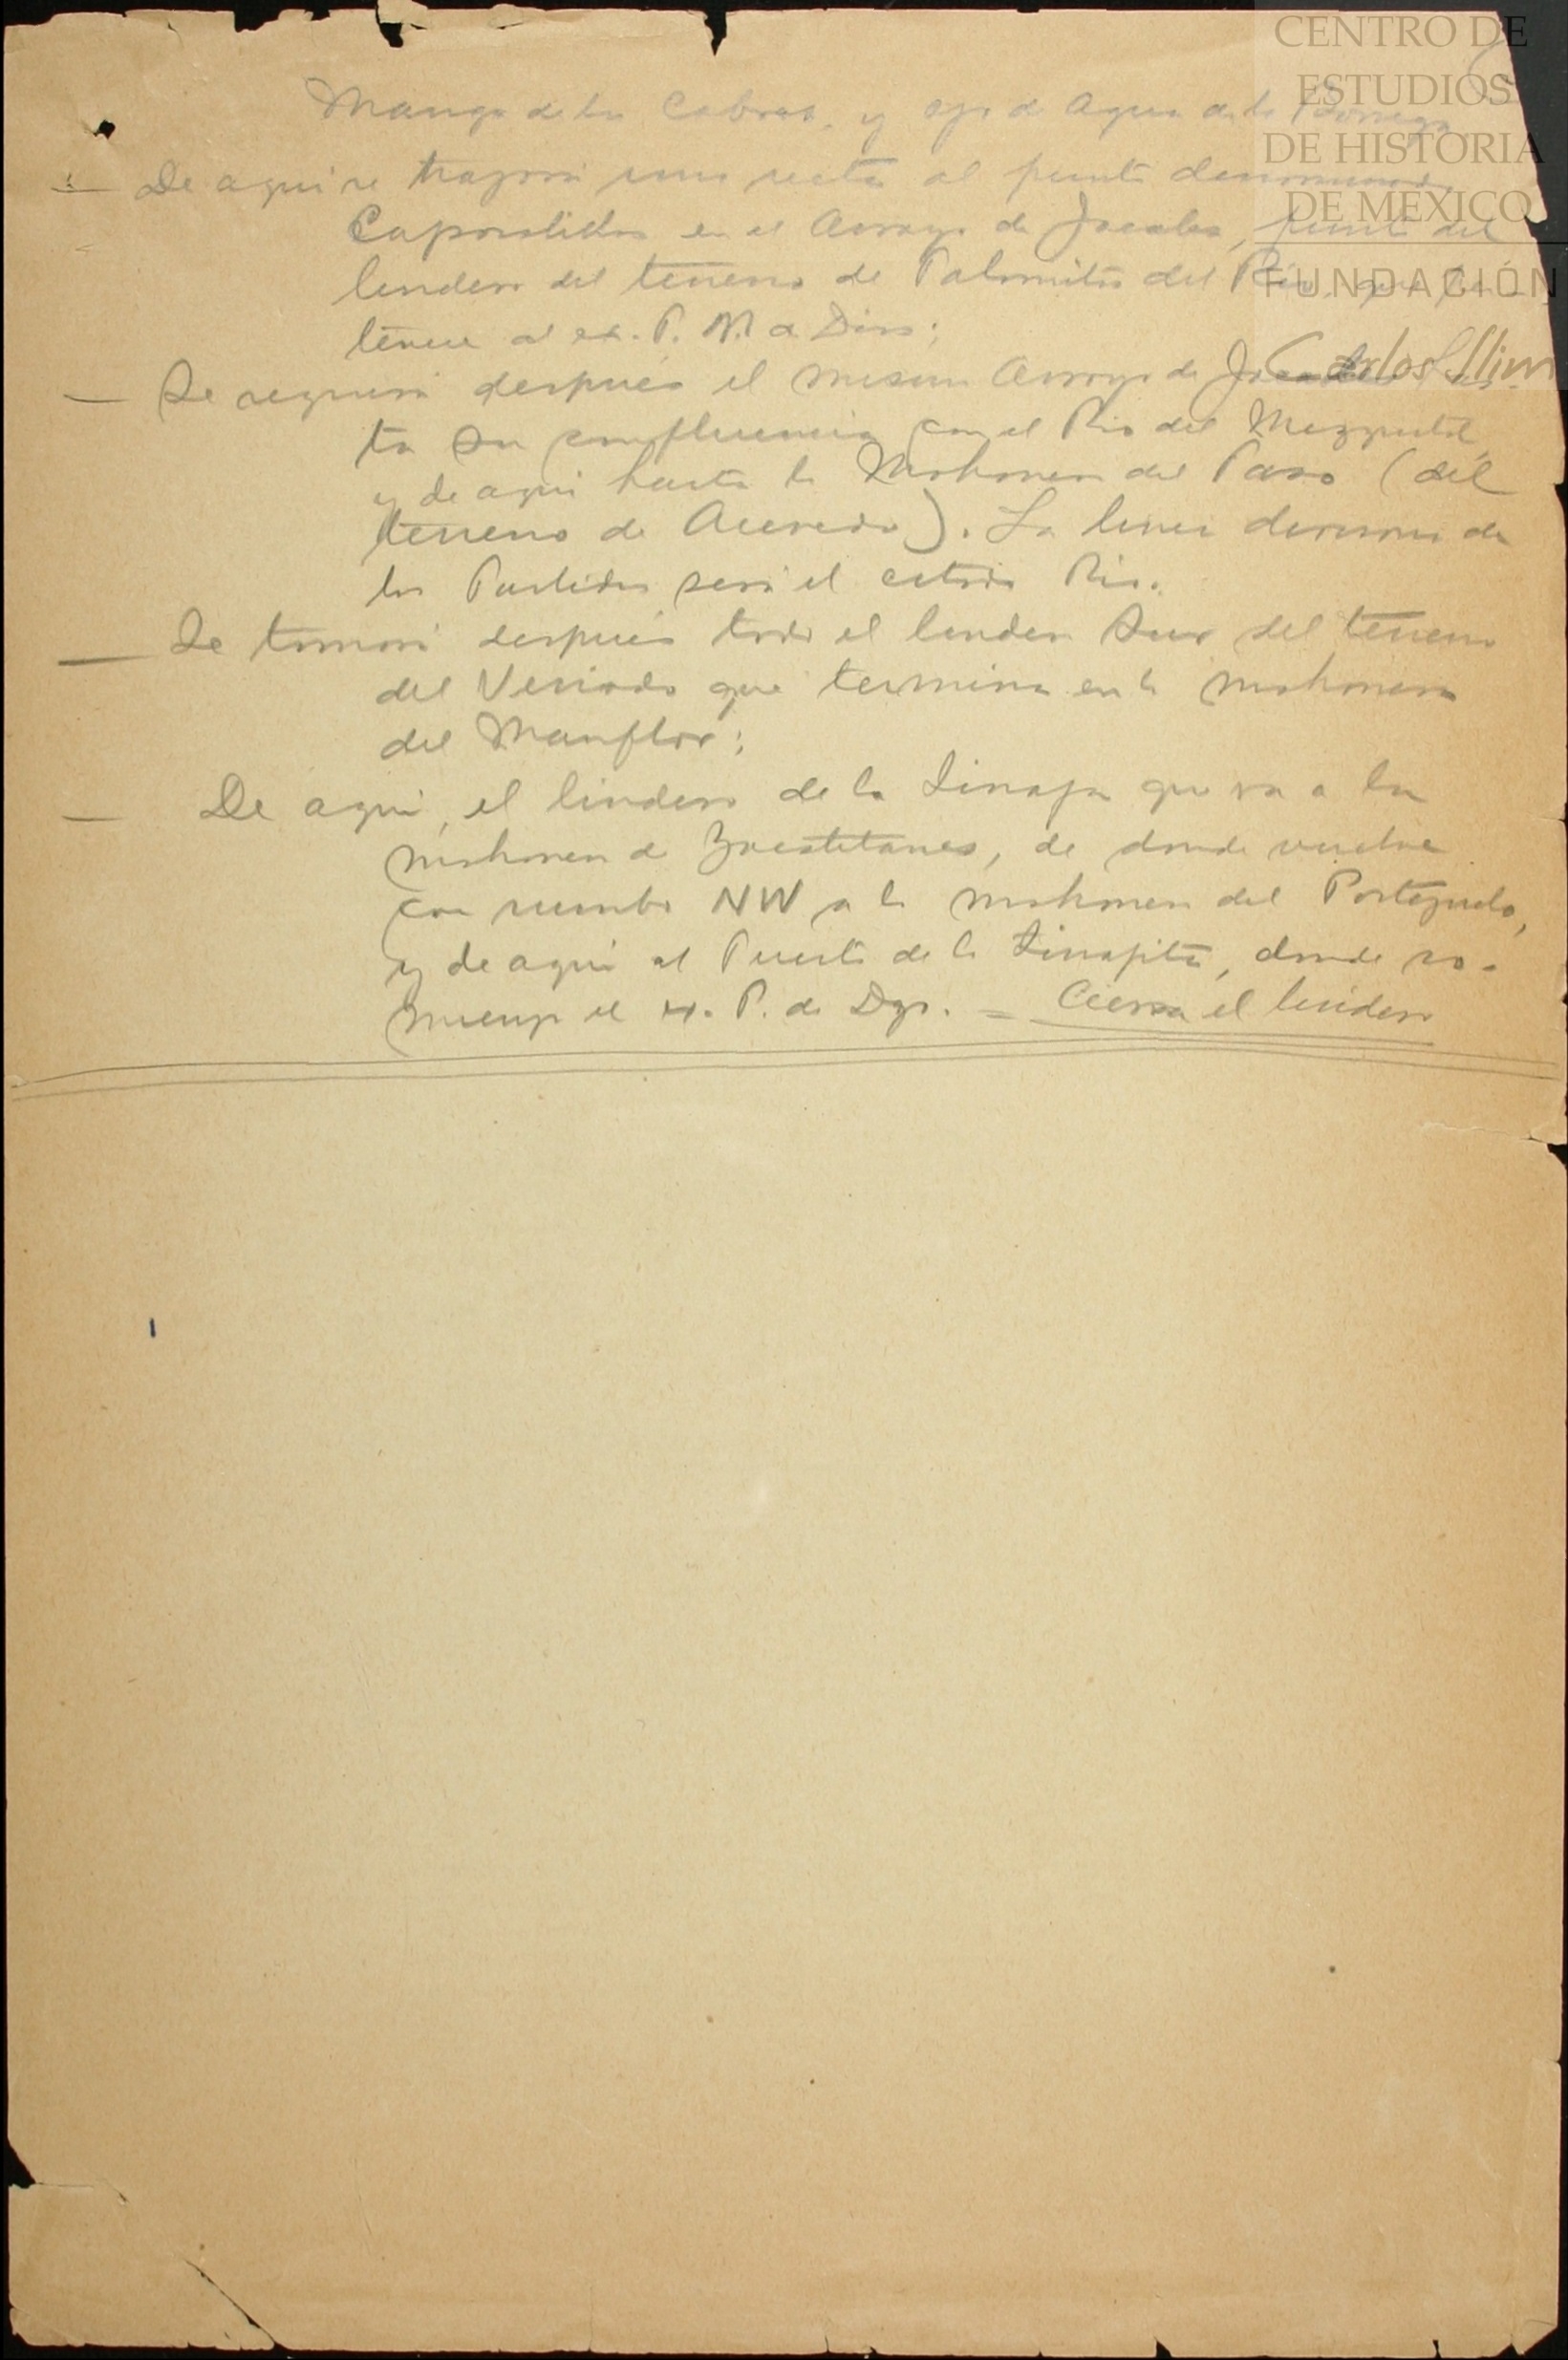 Manga de las Cabras, y ojo de Agua de la Borrega
— De aquí se trazará una recta al punto denominado
Caporalillos en el Arroyo de Jacales, punto del
lindero del terreno de Palomitas del Río, que per-
tenece al ex. P. N. de Dios;
— Se seguirá después el mismo Arroyo de Jacales has-
ta su confluencia con el Rio del Mezquital,
y de aquí hasta la Mohonera del Paso (del
terreno de Acevedo). La linea divisoria de
los Partidos será el citado Rio.
— Se tomará después todo el lindero Sur del terreno
del Venado que termina en la mohonera
del Manflor;
— De aquí, el lindero de la Sinapa que va a la
mohonera de, de donde vuelve
con rumbo NW a la mohonera del Portezuelo,
y de aquí al Puerto de la Sinapita, donde co-
mienza el ex. P. de Dgo. = Cierra el lindero
CENTRO DE
ESTUDIOS
DE HISTORIA
DE MÉXICO
FUNDACIÓN
Carlos Slim